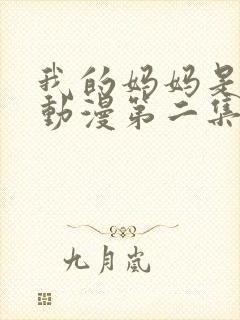 我的妈妈是
動漫第二集
九月嵐